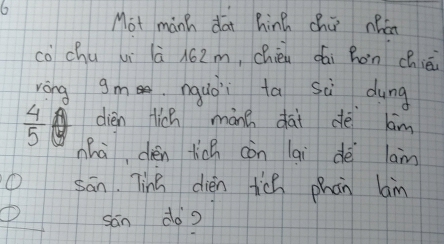 Một mảnh đất hình chữ nhật
có chu vi là 162m, chiều dài hơn chiều
rộng 9m. người ta sử dụng
4/5 diện tích mảnh đất để làm
nhà, diện tích còn lại để làm
sân. Tính diện tích phần làm
sân đó?